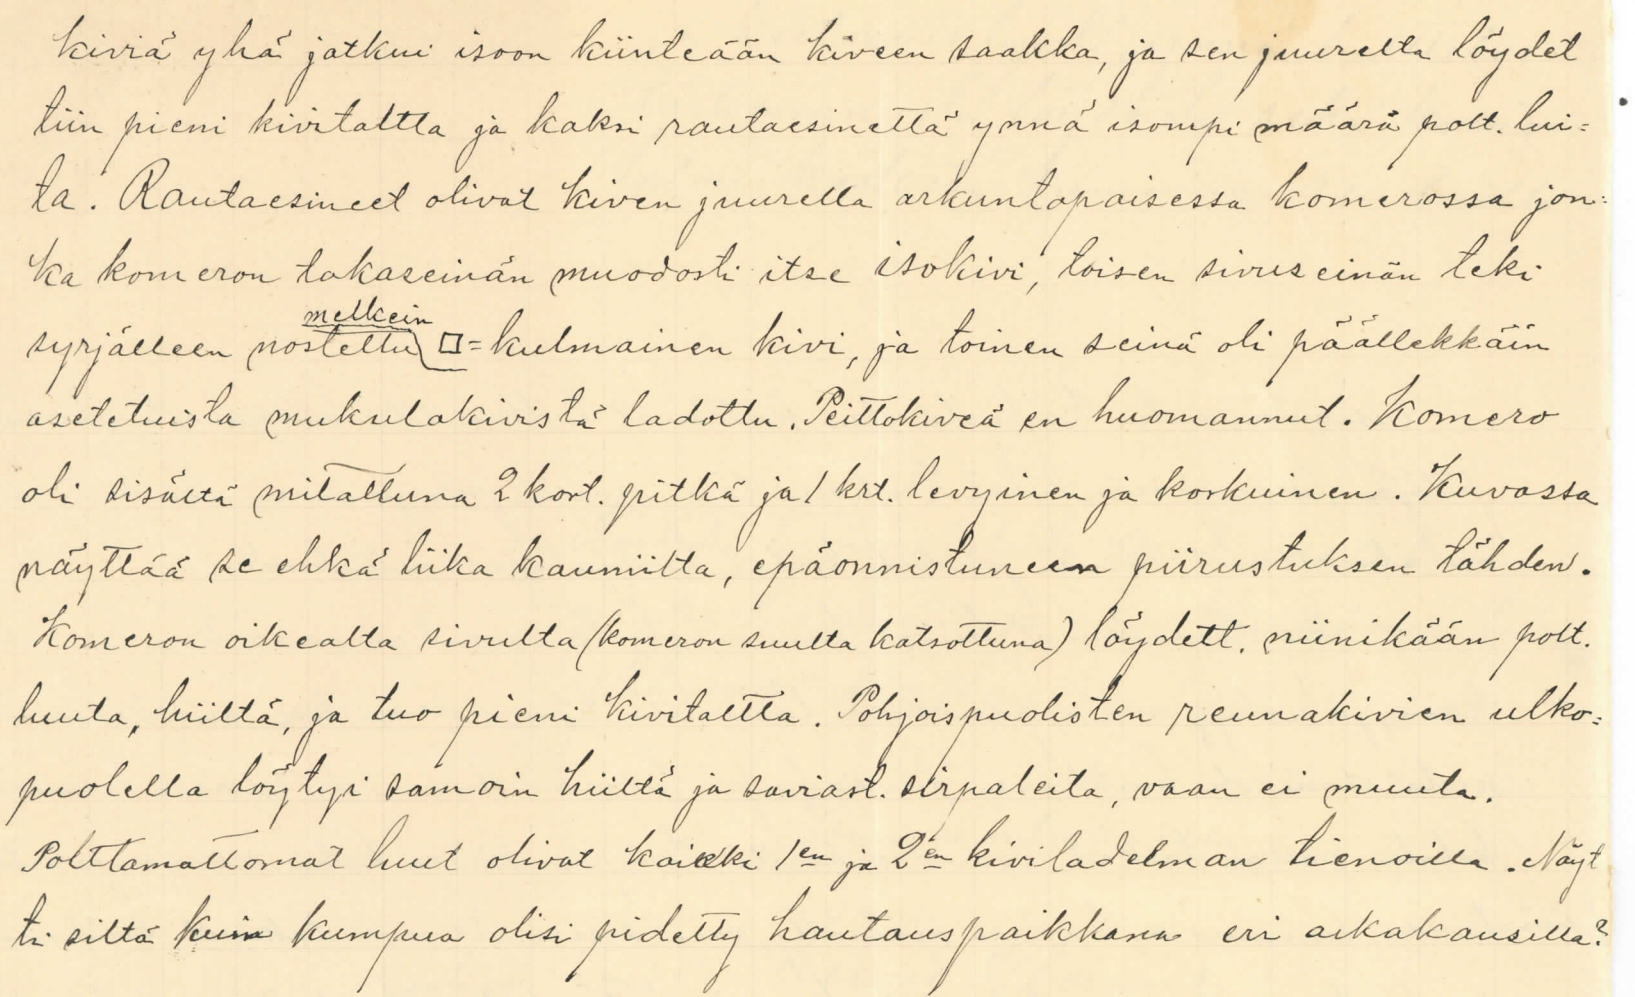 kiviä yhä jatkui isoon kiinteään kiveen saakka, ja sen juurelta löydet
tiin pieni kivitaltta ja kaksi rautaesinettä ynnä isompi määrä polt. lui=
ta. Rautaesineet olivat kiven juurella arkuntapaisessa komerossa jon=
ka komeron takaseinän muodosti itse isokivi, toisen sivuseinän teki
melkein
syrjälleen nostettu □=kulmainen kivi, ja toinen seinä oli päällekkäin
asetetuista mukulakivistä ladottu. Peittokiveä en huomannut. Komero
oli sisältä mitattuna 2 kort. pitkä ja 1 krt. levyinen ja korkuinen. Kuvassa
näyttää se ehkä liika kauniilta, epäonnistuneen piirustuksen tähden.
Komeron oikealta sivulta (komeron suulta katsottuna) löydett. niinikään polt.
luuta, hiiltä, ja tuo pieni kivitaltta. Pohjoispuolisten reunakivien ulko=
puolella löytyi samoin hiiltä ja saviast. sirpaleita, vaan ei muuta.
Polttamattomat luut olivat kaikki 1en ja 2en kiviladelman tienoilla. Näyt
ti siltä kuin kumpua olisi pidetty hautauspaikkana eri aikakausilla?